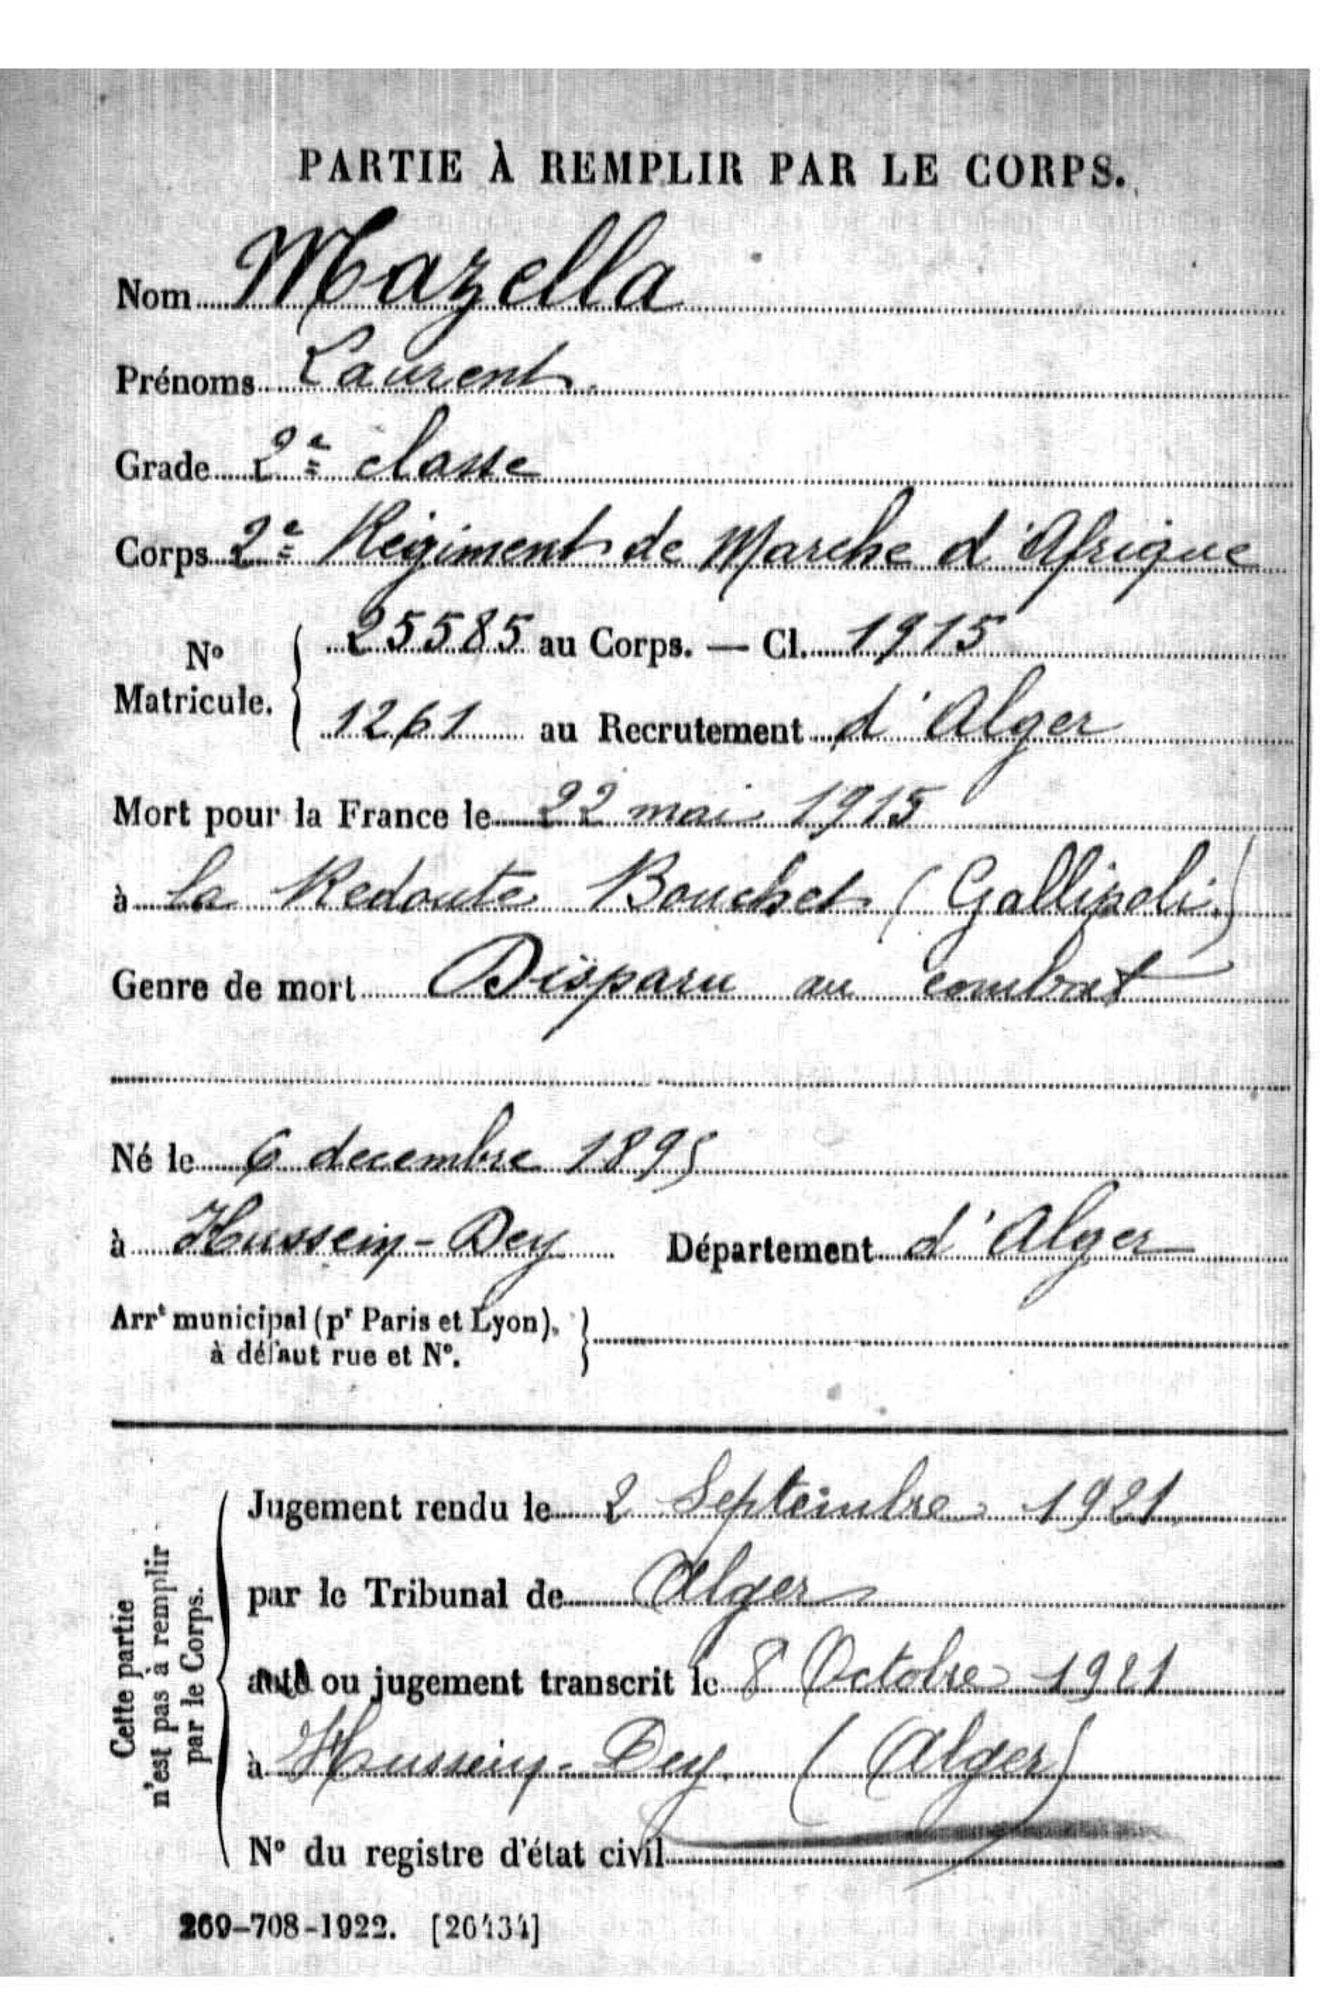 PARTIE À REMPLIR PAR LE CORPS.
Nom Mazella
Prénoms Laurent
Grade 2e classe
Corps 2e Régiment de Marche d'Afrique
No Matricule. { 25585 au Corps. — Cl. 1915
1261 au Recrutement d'Alger
Mort pour la France le 22 mai 1915
à la Redoute Bouchet (Gallipoli)
Genre de mort Disparu au combat
Né le 6 decembre 1895
à Hussein-Dey Département d'Alger
Arrt municipal (pr Paris et Lyon), }
à défaut rue et No.
Cette partie
n'est pas à remplir
par le Corps.
Jugement rendu le 2 Septembre 1921
par le Tribunal de Alger
acte ou jugement transcrit le 8 Octobre 1921
à Hussein-Dey (Alger)
No du registre d'état civil
269-708-1922. [26434]